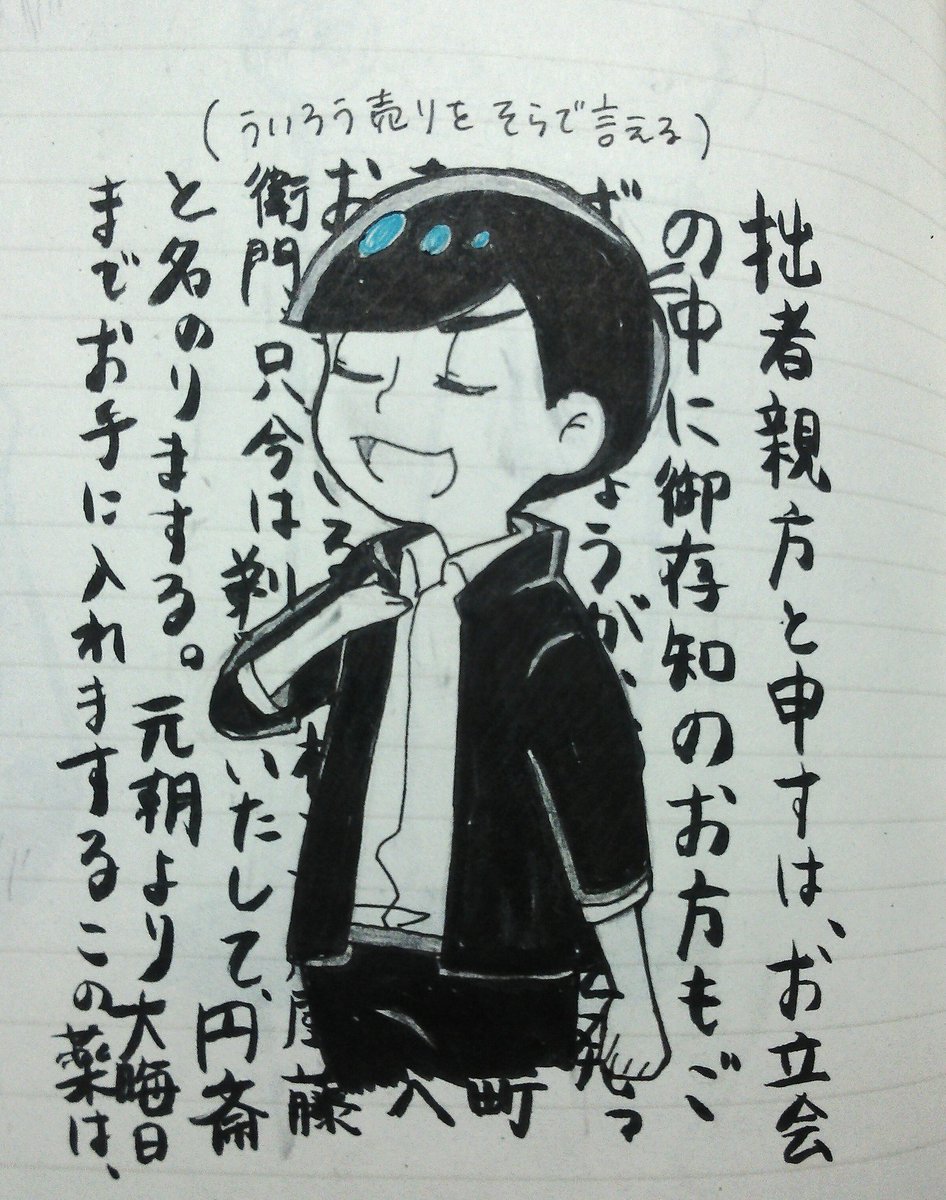 （ういろう売りをそらで言える）
拙者親方と申すは、お立会
の中に御存知のお方もご
ざ ょうが、 発っ
町
八
お 藤
衛門 只今は剃 いたして、円斎
と名のりまする。元朝より大晦日
までお手に入れまするこの薬は、